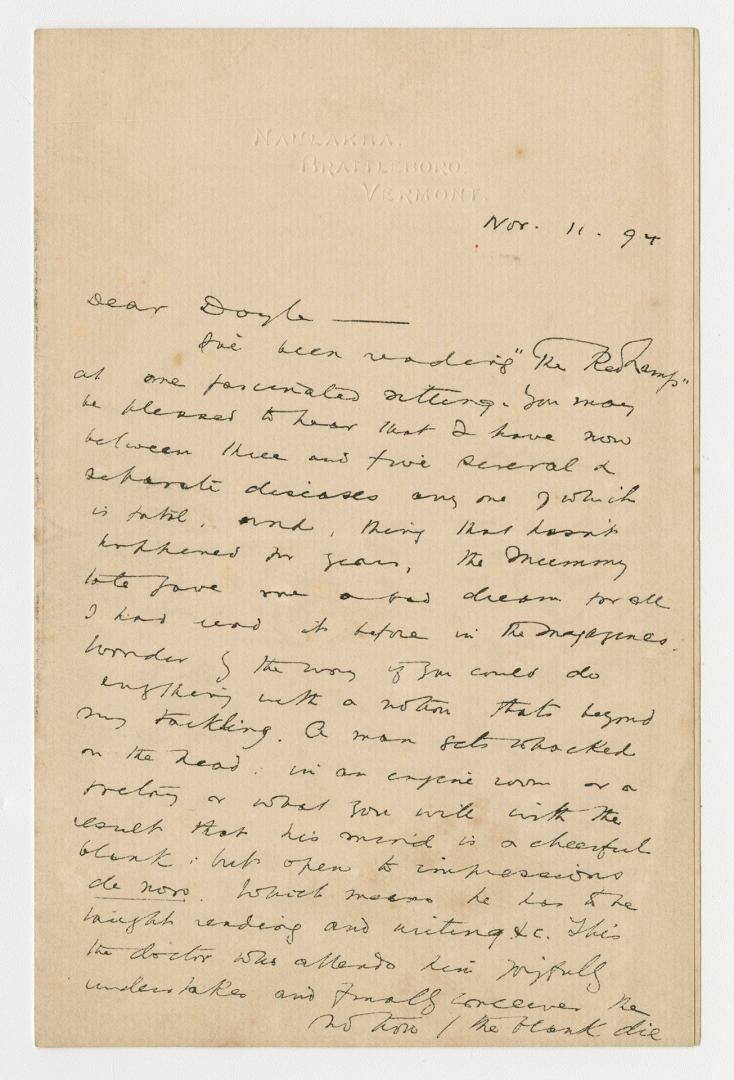 NAULAKHA.
BRATTLEBORO.
VERMONT.
Nov. 11. 94
Dear Doyle —
I've been reading "The Red Lamp"
at one fascinated sitting. You may
be pleased to hear that I have now
between three and five several &
separate diseases any one of which
is fatal, and, thing that hasn't
happened for years, the Mummy
tale gave me a bad dream for all
I had read it before in the magazines.
Wonder by the way if you could do
anything with a notion thats beyond
my tackling. A man gets whacked
on the head: in an engine room or a
factory or what you will with the
result that his mind is a cheerful
blank: but open to impressions
de novo. Which means he has to be
taught reading and writing &c. This
the doctor who attends him joyfully
undertakes and finally conceives the
notion / the blank die